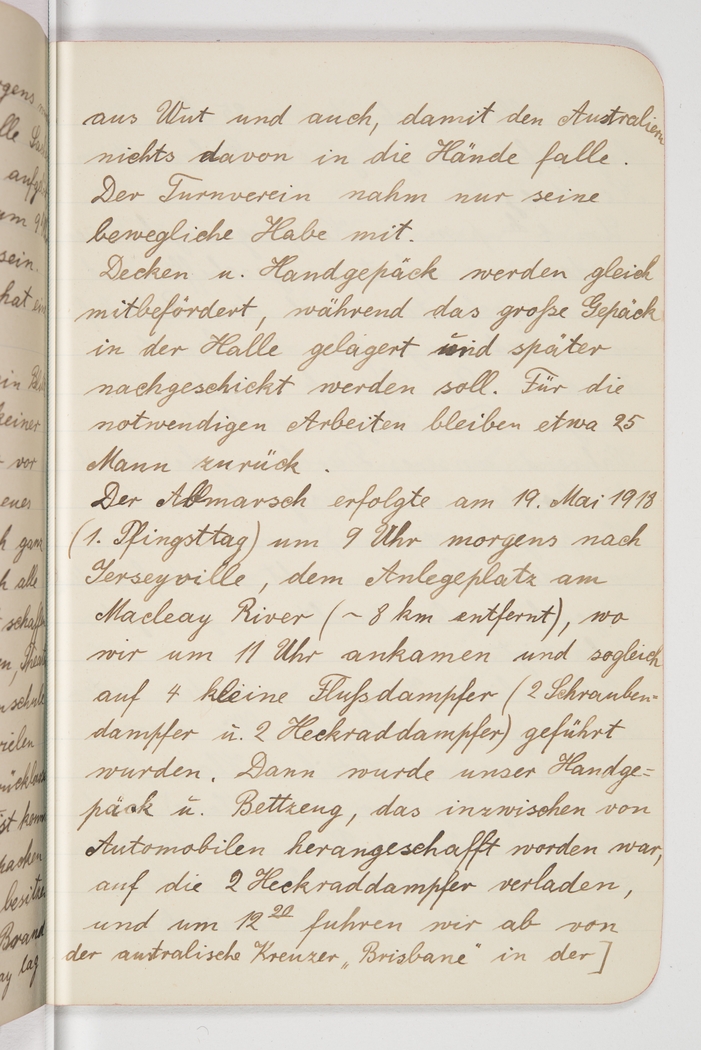 aus Wut und auch, damit den Australiern
nichts davon in die Hände falle.
Der Turnverein nahm nur seine
bewegliche Habe mit.
Decken u. Handgepäck werden gleich
mitbefördert, während das große Gepäck
in der Halle gelagert und später
nachgeschickt werden soll. Für die
notwendigen Arbeiten bleiben etwa 25
Mann zurück.
Der Abmarsch erfolgte am 19. Mai 1918
(1. Pfingsttag) um 9 Uhr morgens nach
Jerseyville, dem Anlegeplatz am
Macleay River (~ 8 km entfernt), wo
wir um 11 Uhr ankamen und sogleich
auf 4 kleine Flußdampfer (2 Schrauben-
dampfer u. 2 Heckraddampfer) geführt
wurden. Dann wurde unser Handge=
päck u. Bettzeug, das inzwischen von
Automobilen herangeschafft worden war,
auf die 2 Heckraddampfer verladen,
und um 12 20 fuhren wir ab von
der australische Kreuzer „Brisbane" in der]